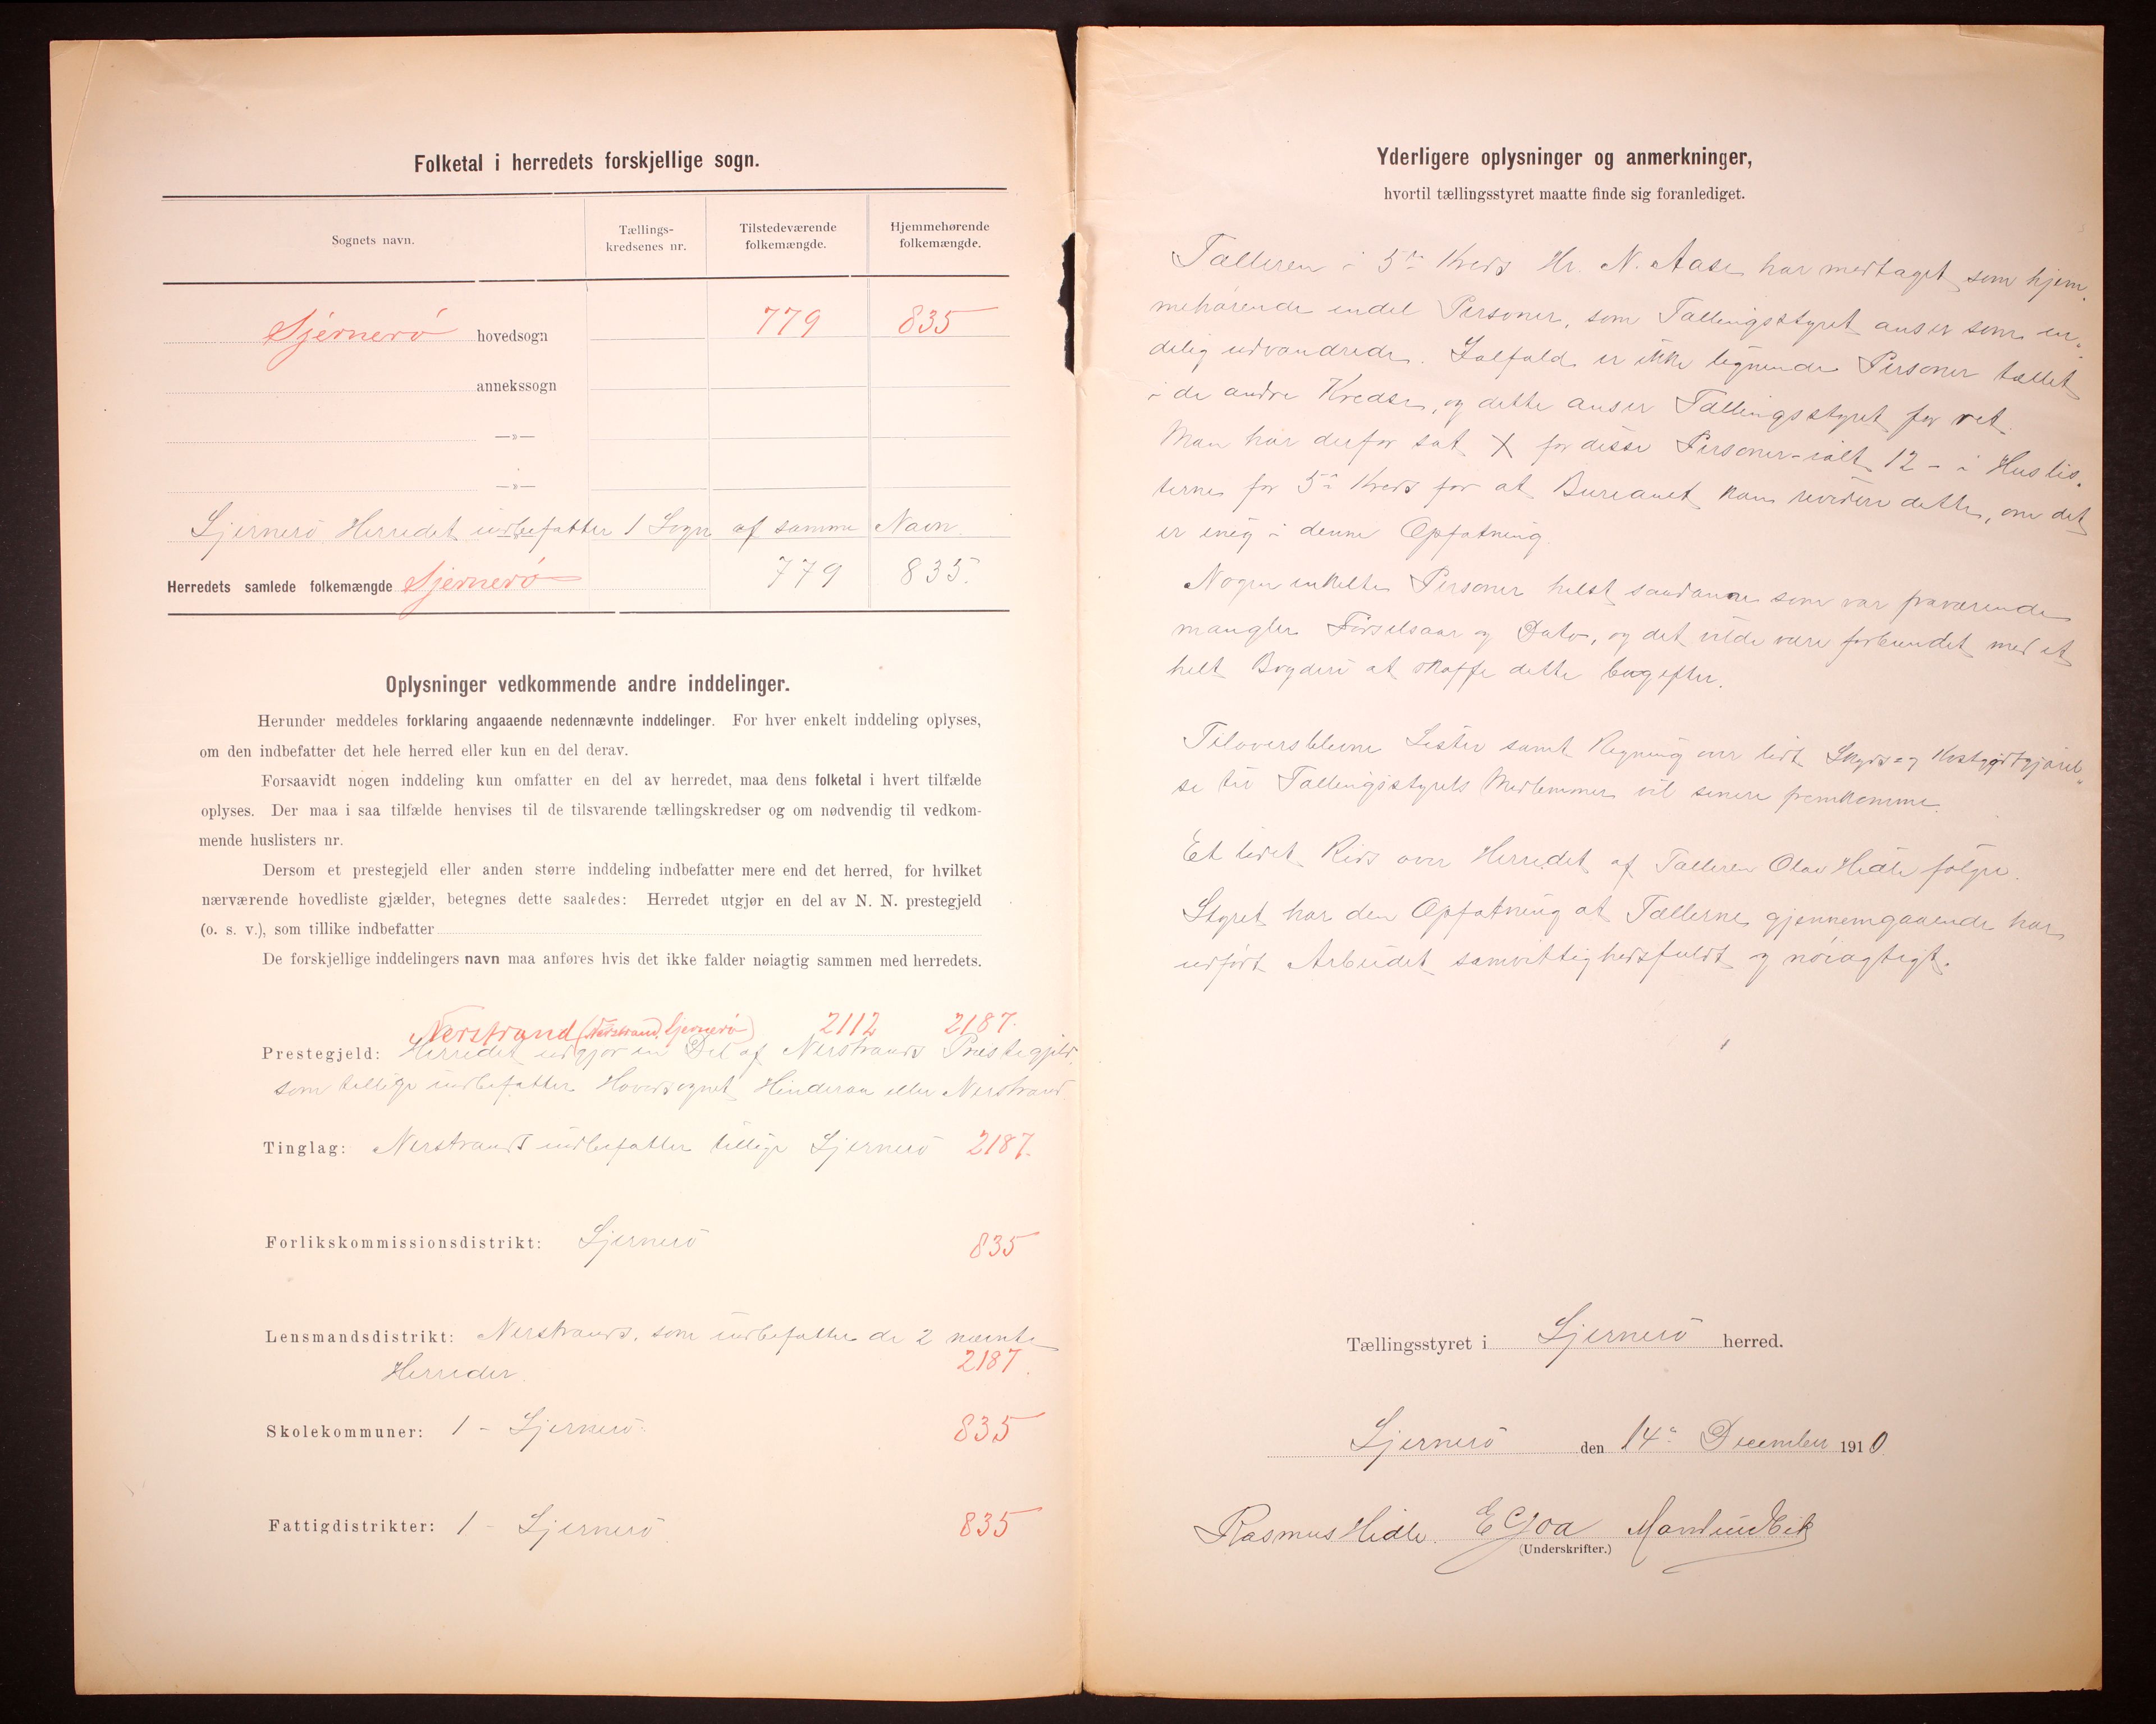 Folketal i herredets forskjellige sogn.
Sognets navn.
Tællings-
kredsenes nr.
Tilstedeværende
folkemængde.
Hjemmehørende
folkemængde.
Sjernerö hovedsogn 779 835
annekssogn
—»—
—»—
Sjernerö Herredet indbefatter 1 Sogn af samme Navn.
Herredets samlede folkemængde Sjernerö 779 835.
Oplysninger vedkommende andre inddelinger.
Herunder meddeles forklaring angaaende nedennævnte inddelinger. For hver enkelt inddeling oplyses,
om den indbefatter det hele herred eller kun en del derav.
Forsaavidt nogen inddeling kun omfatter en del av herredet, maa dens folketal i hvert tilfælde
oplyses. Der maa i saa tilfælde henvises til de tilsvarende tællingskredser og om nødvendig til vedkom-
mende huslisters nr.
Dersom et prestegjeld eller anden større inddeling indbefatter mere end det herred, for hvilket
nærværende hovedliste gjælder, betegnes dette saaledes: Herredet utgjør en del av N. N. prestegjeld
(o. s. v.), som tillike indbefatter
De forskjellige inddelingers navn maa anføres hvis det ikke falder nøiagtig sammen med herredets.
Nerstrand (Nerstrand, Sjernerö) 2112 2187.
Prestegjeld: Herredet udgjør en Del af Nerstrands Præstegjeld,
som tillige indbefatter Hovedsognet Hinderaa eller Nerstrand.
Tinglag: Nerstrands indbefatter tillige Sjernerö 2187.
Forlikskommissionsdistrikt: Sjernerö 835
Lensmandsdistrikt: Nerstrands, som indbefatter de 2 nævnte
Herreder. 2187.
Skolekommuner: 1 - Sjernerö. 835
Fattigdistrikter: 1 - Sjernerö. 835
Yderligere oplysninger og anmerkninger,
hvortil tællingsstyret maatte finde sig foranlediget.
Tælleren i 5te Kreds Hr. N. Aase har medtaget som hjem-
mehørende endel Personer, som Tællingsstyret anser som en-
delig udvandrede. Ialfald er ikke lignende Personer tællet
i de andre Kredse, og dette anser Tællingsstyret for ret.
Man har derfor sat X for disse Personer - ialt 12 - i Huslis-
terne for 5te Kreds for at Bureauet kan revidere dette, om det
er enig i denne Opfatning.
Nogen enkelte Personer helst saadanne som var fraværende
mangler Födselsaar og Dato, og det vilde være forbundet med et
helt Bryderi at skaffe dette bagefter.
Tiloversblevne Lister samt Regning over lidt Skyds og Kostgodtgjørel-
se til Tællingsstyrets Medlemmer vil senere fremkomme.
Et lidet Rids over Herredet af Tælleren Olav Hidle følger.
Styret har den Opfatning at Tællerne gjennemgaaende har
udført Arbeidet samvittighedsfuldt og nöiagtigt.
Tællingsstyret i Sjernerö herred.
Sjernerö den 14de December 1910.
Rasmus Hidle. E Gjoa
(Underskrifter.)